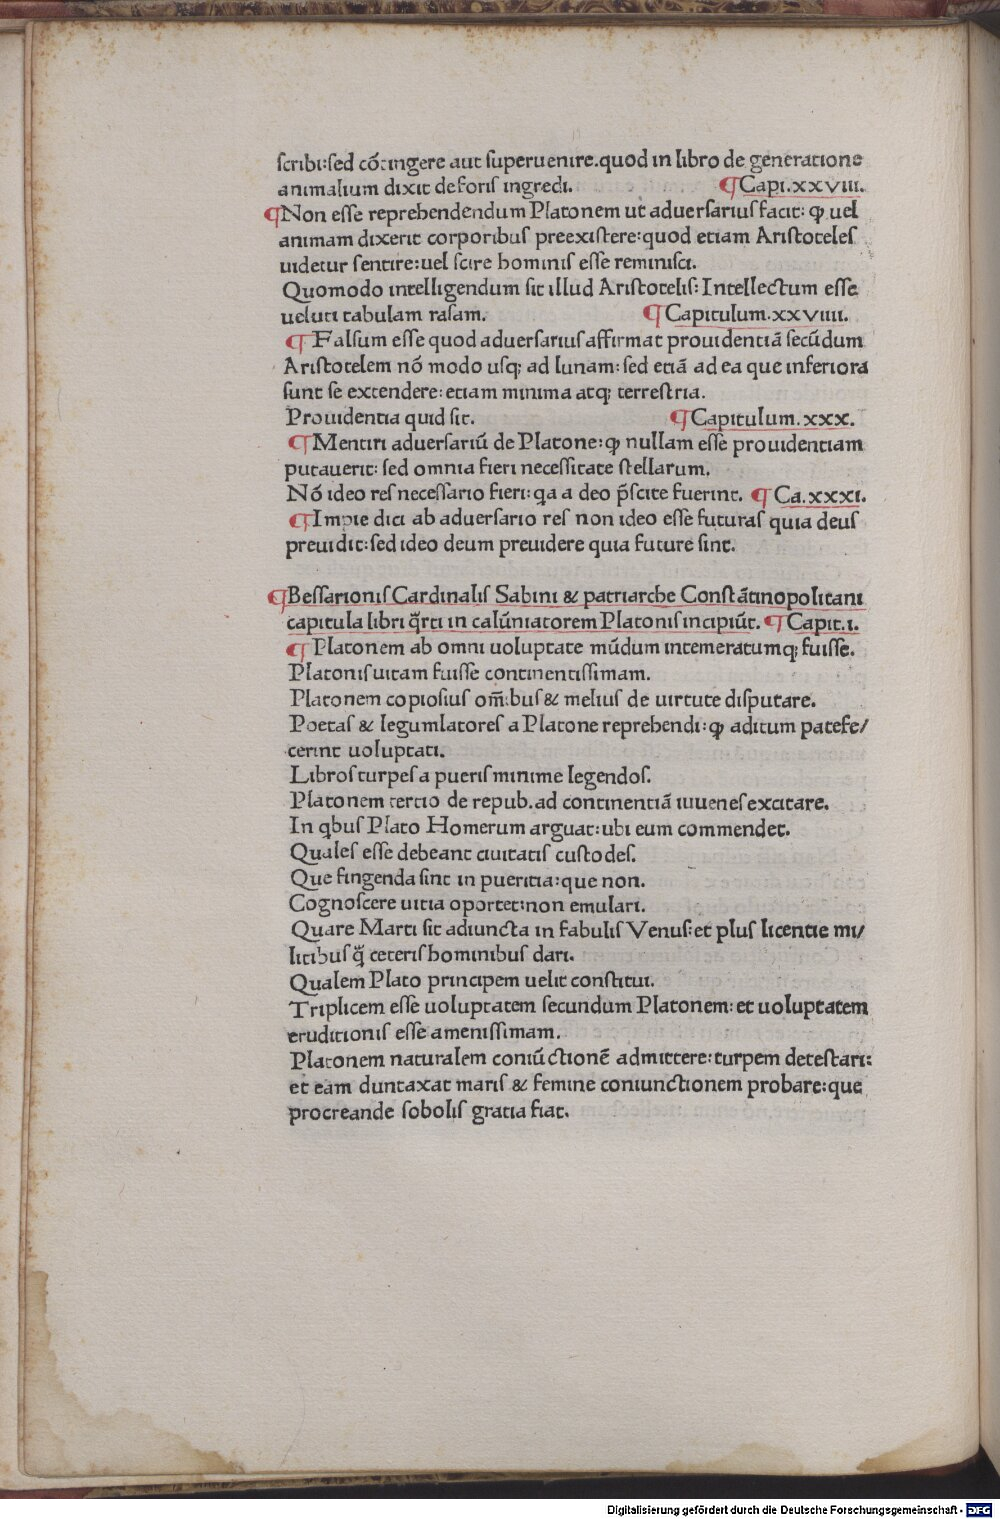 scribi:sed cōtingere aut superuenire.quod in libro de generatione
animalium dixit deforis ingredi. ¶Capi.xxviii.
¶Non esse reprehendendum Platonem ut aduersarius facit: ꝙ uel
animam dixerit corporibus preexistere:quod etiam Aristoteles
uidetur sentire:uel scire hominis esse reminisci.
Quomodo intelligendum sit illud Aristotelis: Intellectum esse
ueluti tabulam rasam. ¶Capitulum.xxviiii.
¶Falsum esse quod aduersarius affirmat prouidentiā secūdum
Aristotelem nō modo usq; ad lunam: sed etiā ad ea que inferiora
sunt se extendere:etiam minima atq; terrestria.
Prouidentia quid sit. ¶Capitulum.xxx.
¶Mentiri aduersariū de Platone:ꝙ nullam esse prouidentiam
putauerit: sed omnia fieri necessitate stellarum.
Nō ideo res necessario fieri:qa a deo p̄scite fuerint. ¶Ca.xxxi.
¶Impie dici ab aduersario res non ideo esse futuras quia deus
preuidit:sed ideo deum preuidere quia future sint.
¶Bessarionis Cardinalis Sabini & patriarche Constātinopolitani
capitula libri q̄rti in calūniatorem Platonis incipiūt. ¶Capit.i.
¶Platonem ab omni uoluptate mūdum intemeratumq; fuisse.
Platonis uitam fuisse continentissimam.
Platonem copiosius om̄ibus & melius de uirtute disputare.
Poetas & legumlatores a Platone reprehendi:ꝙ aditum patefe/
cerint uoluptati.
Libros turpes a pueris minime legendos.
Platonem tertio de repub.ad continentiā iuuenes excitare.
In qbus Plato Homerum arguat:ubi eum commendet.
Quales esse debeant ciuitatis custodes.
Que fingenda sint in pueritia:que non.
Cognoscere uitia oportet:non emulari.
Quare Marti sit adiuncta in fabulis Venus:et plus licentie mi/
litibus q̄ ceteris hominibus dari.
Qualem Plato principem uelit constitui.
Triplicem esse uoluptatem secundum Platonem: et uoluptatem
eruditionis esse amenissimam.
Platonem naturalem coniūctionē admittere:turpem detestari:
et eam duntaxat maris & femine coniunctionem probare:que
procreande sobolis gratia fiat.
Digitalisierung gefördert durch die Deutsche Forschungsgemeinschaft - DFG